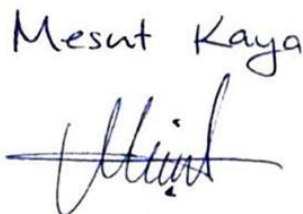 Mesut Kaya